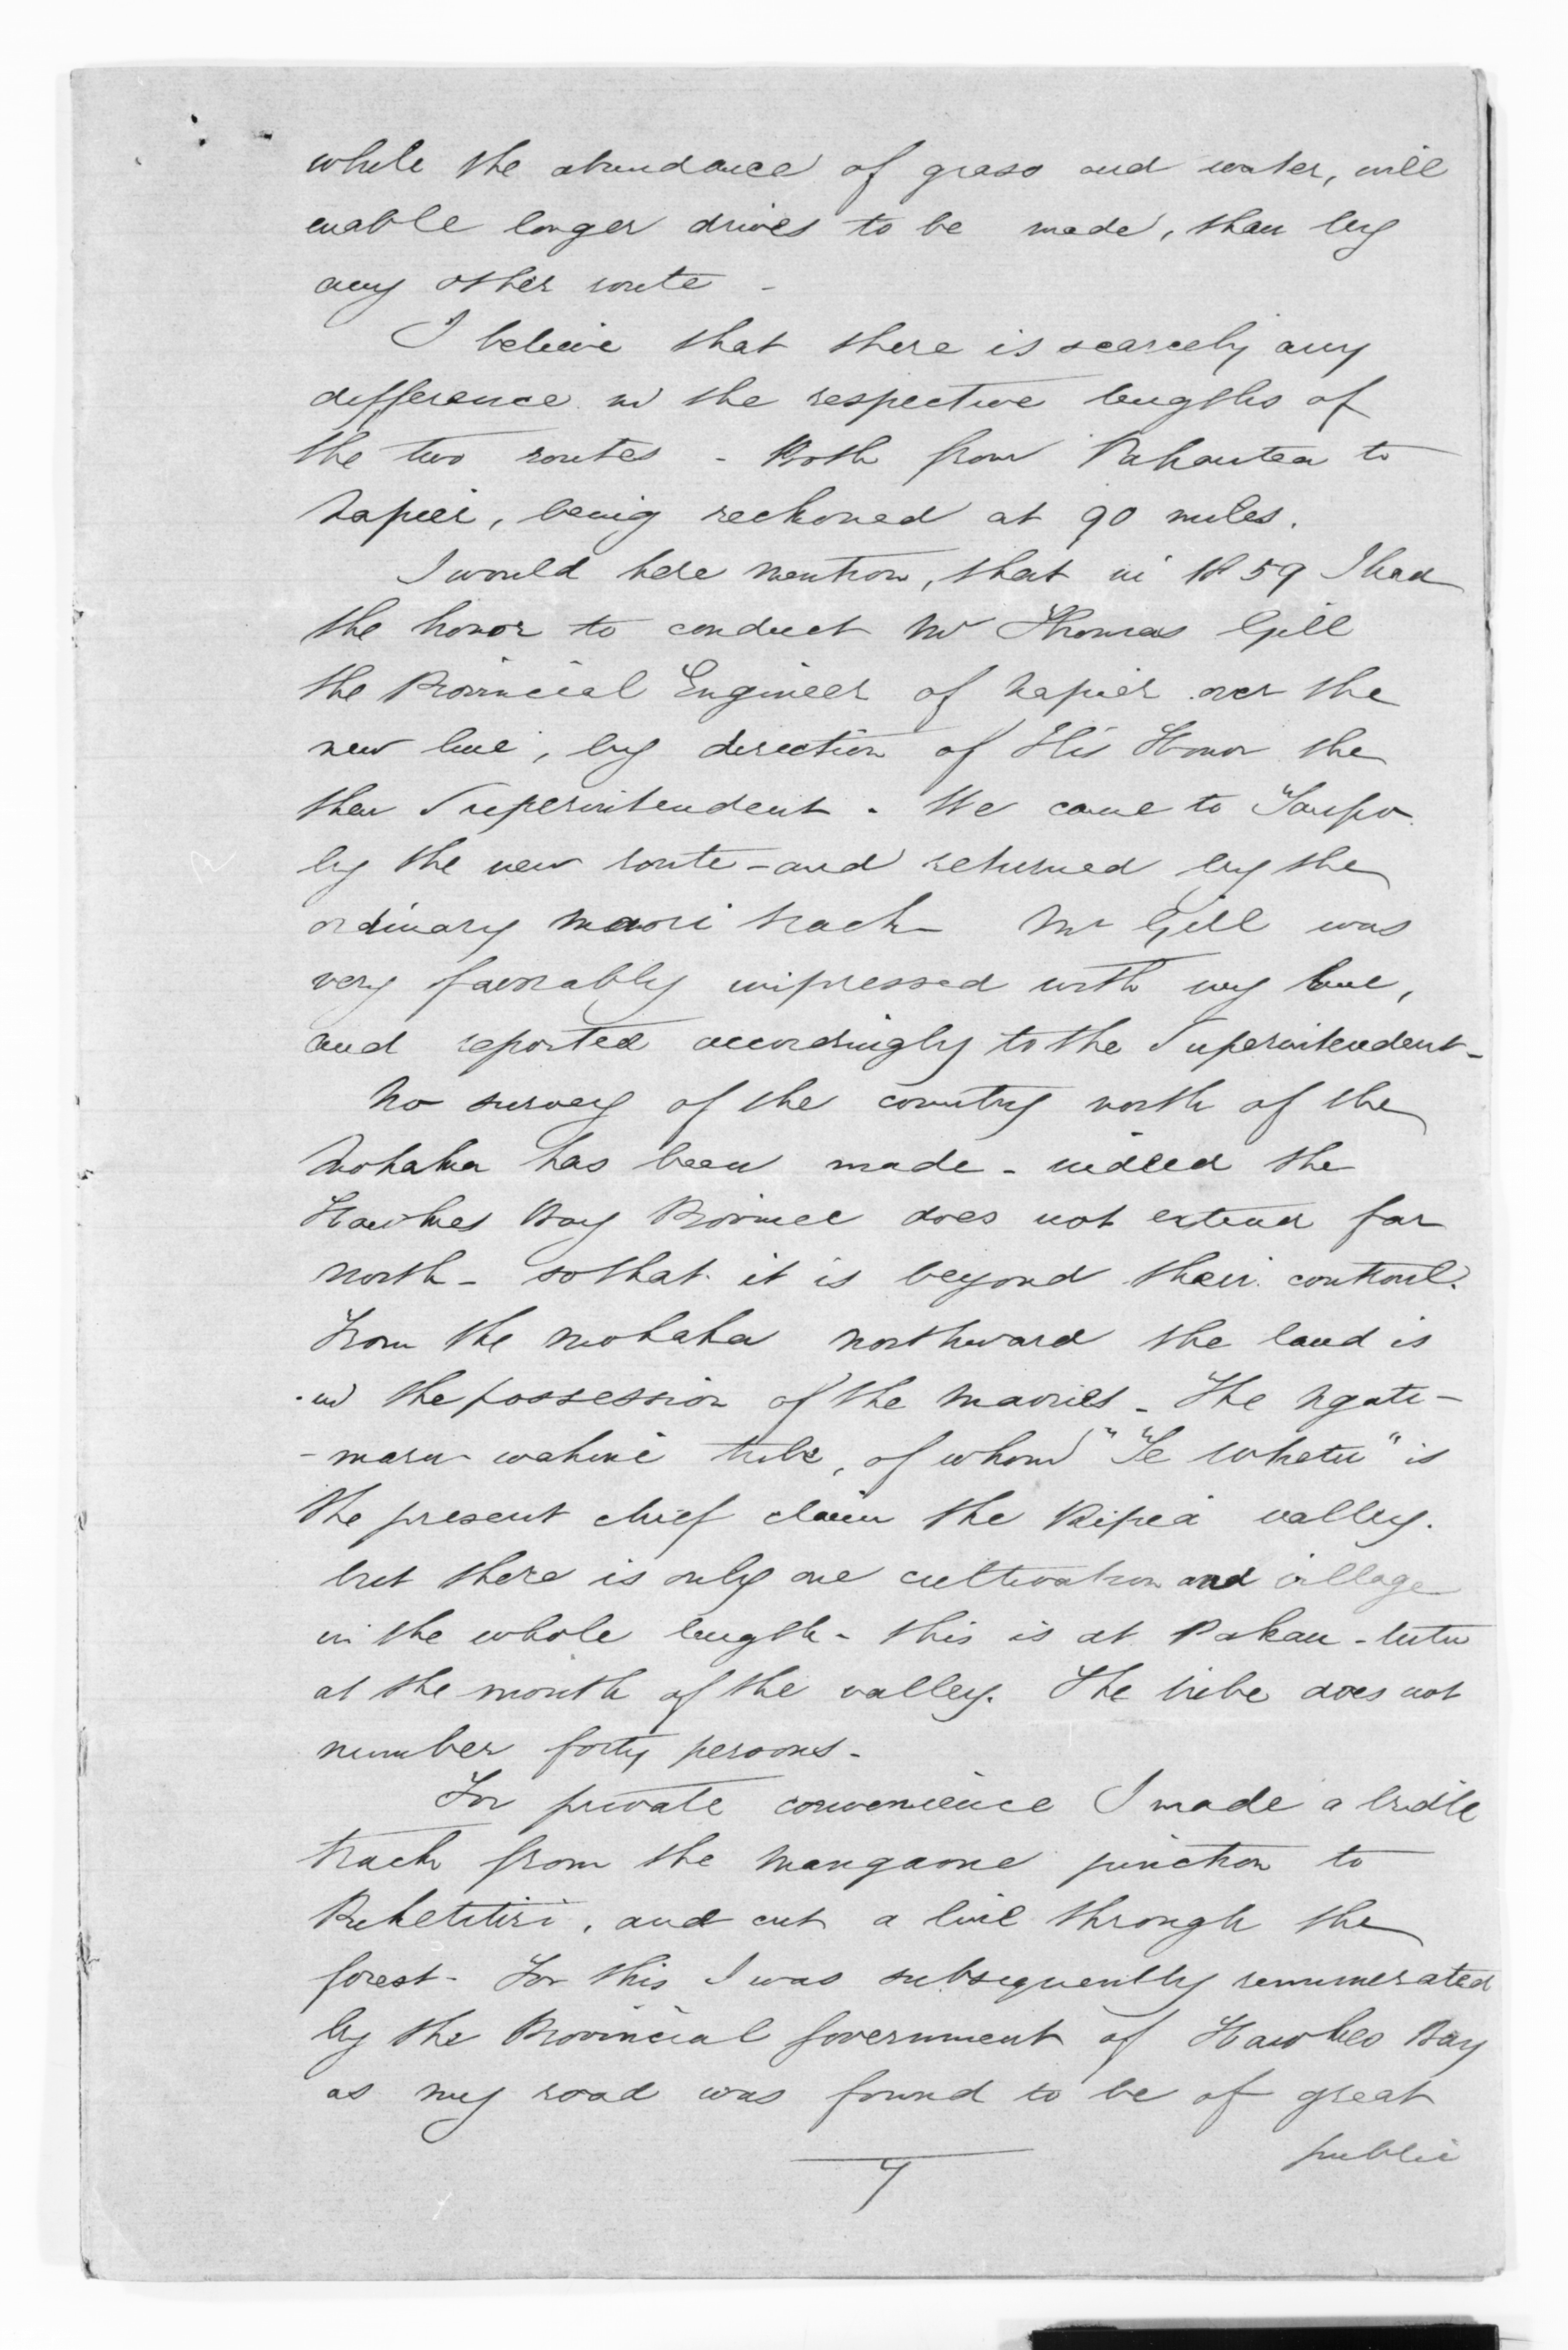 while the abundance of grass and water, will
enable longer drives to be made, than by
any other route -
I believe that there is scarcely any
difference in the respective lengths of
the two routes - Both from Pahautea to
Napier, being reckoned at 90 miles.
I would here mention, that in 1859 I had
the honor to conduct Mr Thomas Gill
the Provincial Engineer of Napier over the
new line, by direction of His Honor the
then Superintendent. We came to Taupo
by the new route - and returned by the
ordinary maori track - Mr Gill was
very favorably impressed with my line,
and reported accordingly to the Superintendent -
No survey of the country north of the
Mohaka has been made - indeed the
Hawkes Bay Province does not extend far
north - so that it is beyond their controul.
From the Mohaka northward the land is
in the possession of the Maories - The Ngati-
- maru - wahine tribe, of whom "Te Whetu" is
the present chief claim the Ripia valley.
but there is only one cultivation and village
in the whole length - this is at Pakau-tutu
at the mouth of the valley. The tribe does not
number forty persons -
For private convenience I made a bridle
track from the Mangaone junction to
Puketitiri, and cut a line through the
forest - For this I was subsequently renumerated
by the Provincial Government of Hawkes Bay
as my road was found to be of great
public
7